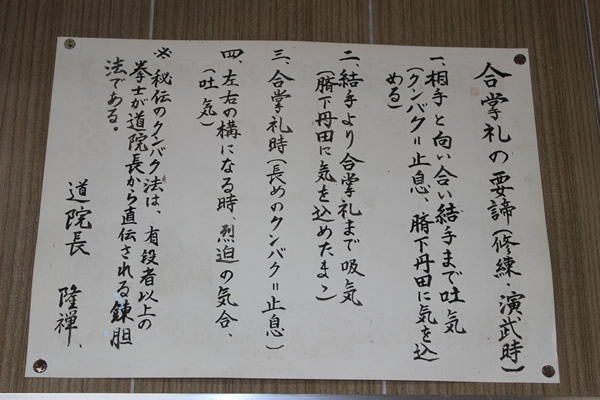 合掌礼の要諦(修練・演武時)
一、相手と向い合い結手まで吐気
(クンバク=止息、臍下丹田に気を込
める)
二、結手より合掌礼まで吸気
(臍下丹田に気を込めたまゝ)
三、合掌礼時(長めのクンバク=止息)
四、左右の構になる時、烈迫の気合、
(吐気)
※秘伝のクンバク法は、有段者以上の
拳士が道院長から直伝される錬胆
法である。
道院長 隆禅、